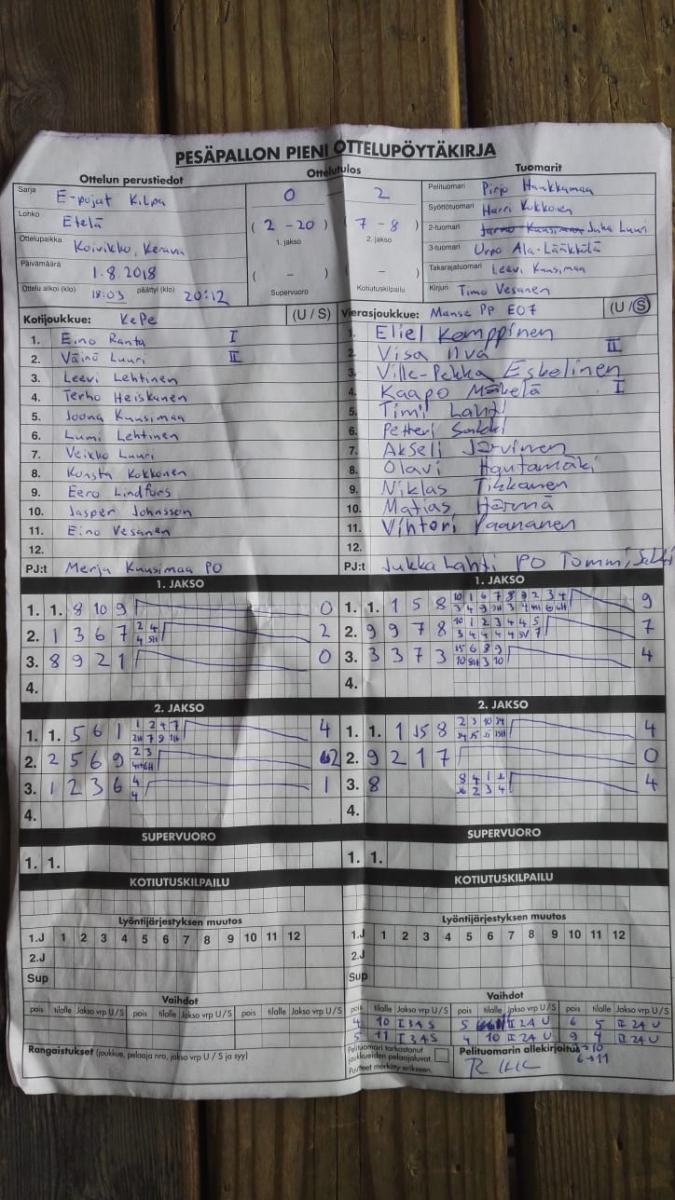 PESÄPALLON PIENI OTTELUPÖYTÄKIRJA
Ottelun perustiedot
Ottelutulos
Tuomarit
Sarja E-pojat Kilpa
0 2
Pelituomari Pirjo
Lohko Etelä
( 2 - 20 ) ( 7 - 8 )
1. jakso 2. jakso
Syöttötuomari Harri Kukkonen
Ottelupaikka Koivikko, Kerava
2-tuomari Juha Luuri
Päivämäärä 1.8.2018
( - ) ( - )
Supervuoro Kotiutuskilpailu
3-tuomari Urpo Ala-Lääkkölä
Takarajatuomari Leevi Kuusimaa
Ottelu alkoi (klo) 18:03 päättyi (klo) 20:12
Kirjuri Timo Vesanen
Kotijoukkue: KePe (U / S)
1. Eino Ranta I
2. Väinö Luuri II
3. Leevi Lehtinen
4. Terho Heiskanen
5. Joona Kuusimaa
6. Lumi Lehtinen
7. Veikko Luuri
8. Konsta Kokkonen
9. Eero Lindfors
10. Jasper Johnsson
11. Eino Vesanen
12.
PJ:t Merja Kuusimaa PO
Vierasjoukkue: Manse PP E07 (U / S)
1. Eliel Kemppinen
2. Visa Ilva II
3. Ville-Pekka Eskolinen
4. Kaapo Mäkelä I
5. Timi Lahti
6. Petteri
7. Akseli Järvinen
8. Olavi Hautamäki
9. Niklas Tikkanen
10. Matias Härmä
11. Vihtori Paananen
12.
PJ:t Jukka Lahti PO Tommi
1. JAKSO
1. 1. 8 10 9 0
2. 1 3 6 7 2
3. 8 9 2 1 0
4.
2. JAKSO
1. 1. 5 6 1 4
2. 2 5 6 9 2
3. 1 2 3 6 1
4.
SUPERVUORO
1. 1.
KOTIUTUSKILPAILU
1. JAKSO
1. 1. 1 5 8 9
2. 9 9 7 8 7
3. 3 3 7 3 4
4.
2. JAKSO
1. 1. 1 15 8 4
2. 9 2 1 7 0
3. 8 4
4.
SUPERVUORO
1. 1.
KOTIUTUSKILPAILU
Lyöntijärjestyksen muutos
1.J 1 2 3 4 5 6 7 8 9 10 11 12
2.J
Sup
Lyöntijärjestyksen muutos
1.J 1 2 3 4 5 6 7 8 9 10 11 12
2.J
Sup
Vaihdot
pois tilalle Jakso vrp U/S pois tilalle Jakso vrp U/S pois tilalle Jakso vrp U/S
Vaihdot
pois tilalle Jakso vrp U/S pois tilalle Jakso vrp U/S pois tilalle Jakso vrp U/S
4 10 I 3A S 5 II 2A U 6 5 II 2A U
5 11 I 3A S 4 10 II 2A U 9 4 II 2A U
Rangaistukset (joukkue, pelaaja nro, jakso vrp U/S ja syy)
Pelituomari tarkastanut joukkueiden pelaajaluvat
Puutteet merkitty erikseen.
Pelituomarin allekirjoitus
6→11